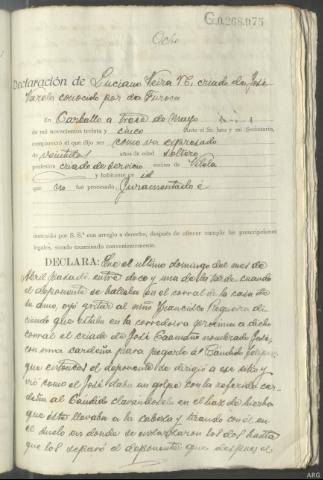 G.0.268.975
Ocho
Declaración de Luciano Neira criado de José
Varela conocido por da Furoca
En Carballo a trece de Mayo
de mil novecientos treinta y cinco Ante el Sr. Juez y mi Secretario,
compareció el que dijo ser como va expresado
de veintidos años de edad soltero
profesión criado de servicio vecino de
y habitante en id
que no fue procesado, Juramentado e
instruído por S. S.ª con arreglo a derecho, después de ofrecer cumplir las prescripciones
legales, siendo examinado convenientemente.
DECLARA: Que el ultimo domingo del mes de
Abril pasado entre doce y una de la tarde cuando
el deponente se hallaba en el corral de la casa de
su amo, oyó gritar al niño Francisco Regueira di-
ciendo que estaba en la corredoira proximo a dicho
corral el criado de José Caamaño nombrado José,
con una para pegarle a Cándido
que entonces el deponente se dirigió a ese sitio y
vió como el José daba un golpe con la referida
al Cándido en el haz de hierba
que éste llevaba a la cabeza y tirando con él en
el suelo en donde se enlazaron los dos hasta
que los separó el deponente que despues el
ARG